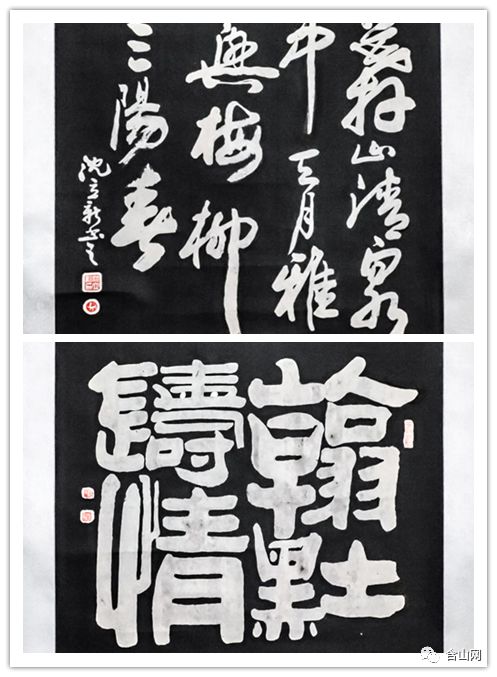 山清泉
中月雅
興梅柳
三陽春
沈立新书之
翰墨
情
含山网